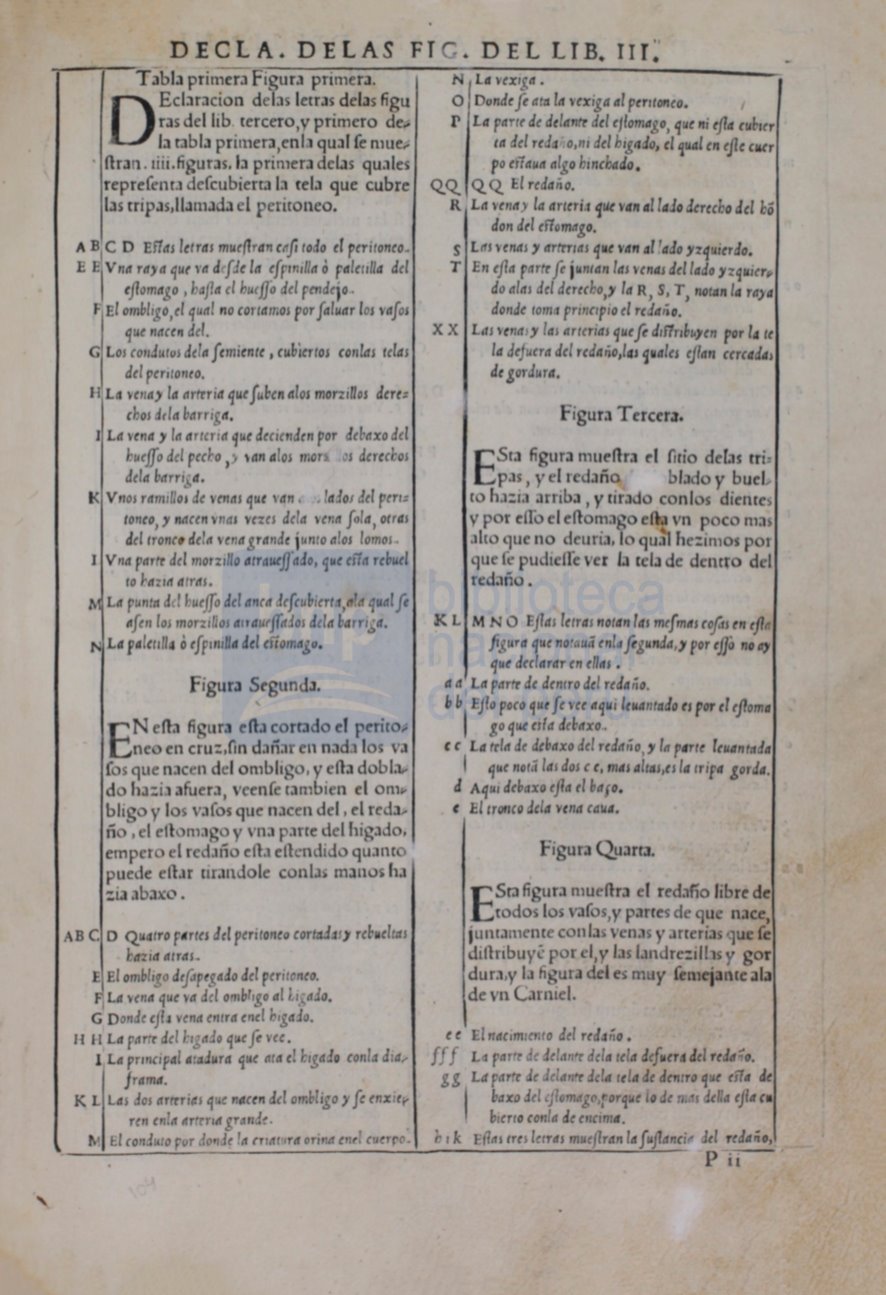 DECLA. DELAS FIG. DEL LIB. III.
Tabla primera Figura primera.
DEclaracion delas letras delas figu
ras del lib. tercero, y primero de-
la tabla primera, enla qual ſe mue-
ſtran. iiii. figuras. la primera delas quales
repreſenta deſcubierta la tela que cubre
las tripas, llamada el peritoneo.
A B C D Eſtas letras mueſtran caſi todo el peritoneo.
E E Vna raya que va deſde la eſpinilla ò paletilla del
eſtomago, haſta el hueſſo del pendejo.
F El ombligo, el qual no cortamos por ſaluar los vaſos
que nacen del.
G Los condutos dela ſemiente, cubiertos conlas telas
del peritoneo.
H La vena y la arteria que ſuben alos morzillos dere-
chos dela barriga.
I La vena y la arteria que decienden por debaxo del
hueſſo del pecho, y van alos derechos
dela barriga.
K Vnos ramillos de venas que van lados del peri-
toneo, y nacen vnas vezes dela vena ſola, otras
del tronco dela vena grande junto alos lomos.
L Vna parte del morzillo atraueſſado, que eſta rebuel
to hazia atras.
M La punta del hueſſo del anca deſcubierta, ala qual ſe
aſen los morzillos atraueſſados dela barriga.
N La paletilla ò eſpinilla del eſtomago.
Figura Segunda.
EN eſta figura eſta cortado el perito-
neo en cruz, ſin dañar en nada los va
ſos que nacen del ombligo, y eſta dobla-
do hazia afuera, veenſe tambien el om-
bligo y los vaſos que nacen del, el reda-
ño, el eſtomago y vna parte del higado,
empero el redaño eſta eſtendido quanto
puede eſtar tirandole conlas manos ha
zia abaxo.
ABC D Quatro partes del peritoneo cortadas y rebueltas
hazia atras.
E El ombligo deſapegado del peritoneo.
F La vena que va del ombligo al higado.
G Donde eſta vena entra enel higado.
H H La parte del higado que ſe vee.
I La principal atadura que ata el higado conla dia-
frama.
K L Las dos arterias que nacen del ombligo y ſe enxie-
ren enla arteria grande.
M El conduto por donde la criatura orina enel cuerpo.
N La vexiga.
O Donde ſe ata la vexiga al peritoneo.
P La parte de delante del eſtomago, que ni eſta cubier
ta del redaño, ni del higado, el qual en eſte cuer
po eſtaua algo hinchado.
QQ QQ El redaño.
R La vena y la arteria que van al lado derecho del hõ
don del eſtomago.
S Las venas y arterias que van al lado yzquierdo.
T En eſta parte ſe juntan las venas del lado yzquier-
do alas del derecho, y la R, S, T, notan la raya
donde toma principio el redaño.
X X Las venas y las arterias que ſe diſtribuyen por la te
la defuera del redaño, las quales eſtan cercadas
de gordura.
Figura Tercera.
ESta figura mueſtra el ſitio delas tri-
pas, y el redaño blado y buel-
to hazia arriba, y tirado conlos dientes
y por eſſo el eſtomago eſta vn poco mas
alto que no deuria, lo qual hezimos por
que ſe pudieſſe ver la tela de dentro del
redaño.
K L M N O Eſtas letras notan las meſmas coſas en eſta
figura que notauã enla ſegunda, y por eſſo no ay
que declarar en ellas.
a a La parte de dentro del redaño.
b b Eſto poco que ſe vee aqui leuantado es por el eſtoma
go que eſta debaxo.
c c La tela de debaxo del redaño, y la parte leuantada
que notã las dos c c, mas altas, es la tripa gorda.
d Aqui debaxo eſta el baço.
e El tronco dela vena caua.
Figura Quarta.
ESta figura mueſtra el redaño libre de
todos los vaſos, y partes de que nace,
juntamente conlas venas y arterias que ſe
diſtribuyẽ por el, y las landrezillas y gor
dura, y la figura del es muy ſemejante ala
de vn Carniel.
e e El nacimiento del redaño.
fff La parte de delante dela tela defuera del redaño.
gg La parte de delante dela tela de dentro que eſta de
baxo del eſtomago, porque lo de mas della eſta cu
bierto conla de encima.
h i k Eſtas tres letras mueſtran la ſuſtancia del redaño,
P ii
biblioteca